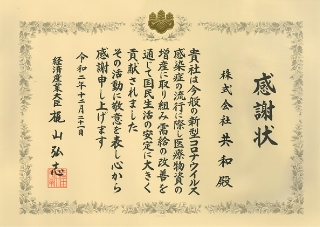 感謝状
株式会社 共和 殿
貴社は今般の新型コロナウイルス
感染症の流行に際し医療物資の
増産に取り組み需給の改善を
通じて国民生活の安定に大きく
貢献されました
その活動に敬意を表し心から
感謝申し上げます
令和二年十二月二十一日
経済産業大臣 梶山弘志